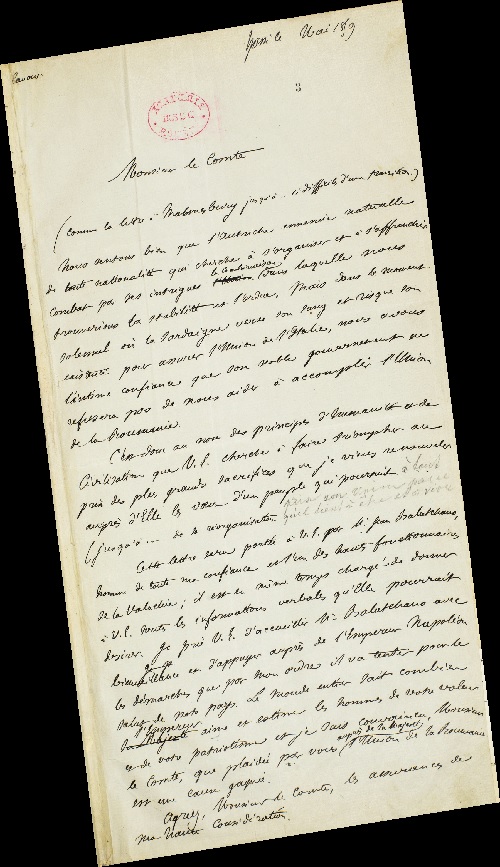 Cavour
Mai 1859
3
Monsieur le Comte
(Comme la lettre à Malmesbury jusqu'à si difficile d'une transition.)
Nous sentons bien que l'Autriche ennemie naturelle
de toute nationalité qui cherche à s'organiser et à s'affranchir
combat par ses intrigues la combinaison dans laquelle nous
trouverions la stabilité et l'ordre, mais dans le moment
solennel où la Sardaigne verse son sang et risque son
existence pour assurer l'Union de l'Italie, nous avons
l'intime confiance que son noble gouvernement ne
refusera pas de nous aider à accomplir l'Union
de la Roumanie.
C'est donc au nom des principes d'Humanité et de
Civilisation que V.E. cherche à faire triompher au
prix des plus grands sacrifices que je viens renouveler
auprès d'Elle les vœux d'un peuple qui
(jusqu'à ... de se réorganiser
Cette lettre sera portée à V.E. par Mr. Jean Balatchano,
homme de toute ma confiance et l'un des hauts fonctionnaires
de la Valachie; il est en même temps chargé de donner
à V.E. toutes les informations verbales qu'Elle pourrait
désirer. Je prie V.E. d'accueillir Mr. Balatchano avec
bienveillance et d'appuyer auprès de l'Empereur Napoléon
les démarches que par mon ordre il va tenter pour le
salut de notre pays. Le monde entier sait combien
l'Empereur aime et estime les hommes de votre valeur
et de votre patriotisme et je suis convaincu, Monsieur
le Comte, que plaidée par vous auprès de Sa Majesté l'Union de la Roumanie
est une cause gagnée.
Agréez, Monsieur le Comte, les assurances de
ma haute considération.